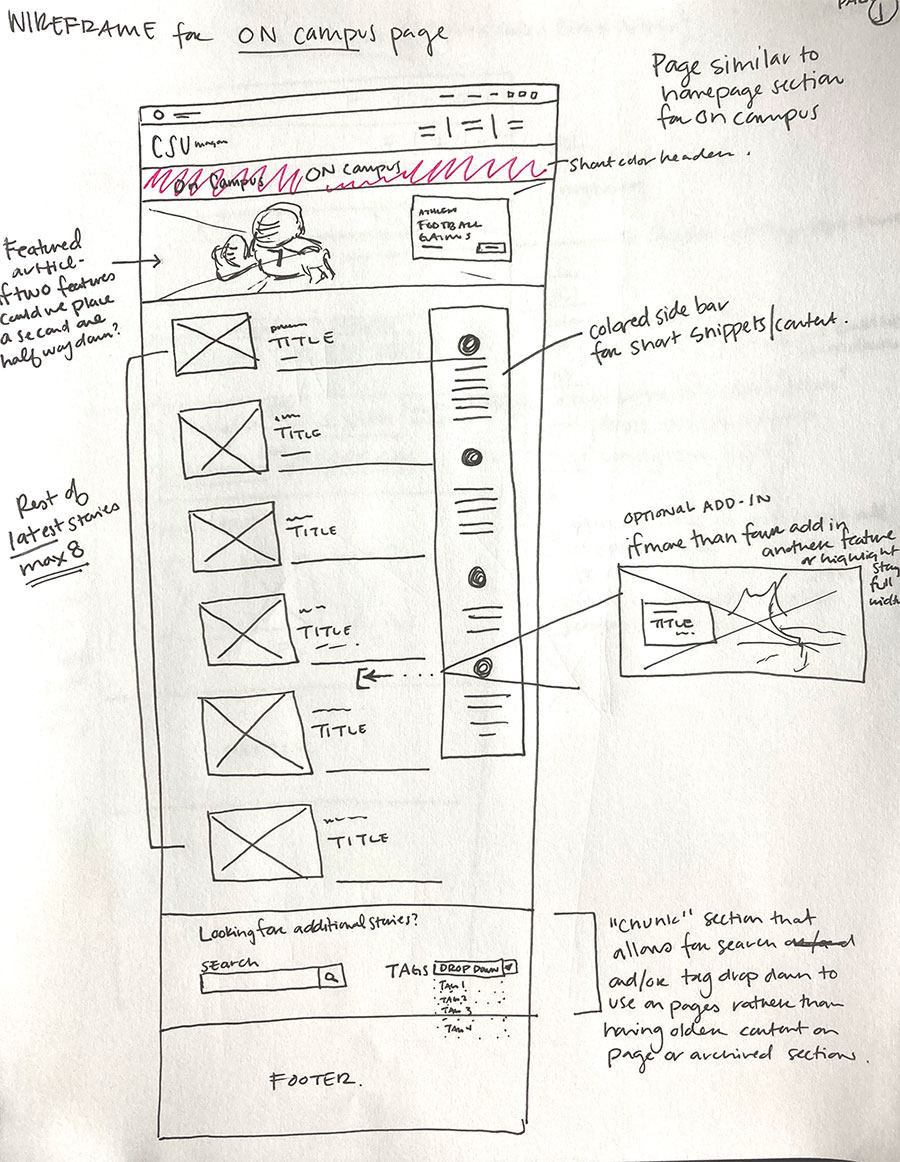 WIREFRAME for ON campus page
PAGE 1
Page similar to
homepage section
for on campus
CSU
On Campus ON campus
short color header.
ATHLETICS
FOOTBALL
GAINS
Featured
article-
if two features
could we place
a second one
half way down?
TITLE
colored side bar
for short snippets/content.
TITLE
Rest of
latest stories
max 8
TITLE
OPTIONAL ADD-IN
if more than four add in
another feature
or highlight
stay
full
width
TITLE
TITLE
TITLE
TITLE
Looking for additional stories?
SEARCH
TAGS DROP DOWN
TAG 1
TAG 2
TAG 3
TAG 4
"Chunk" section that
allows for search and/or
tag drop down to
use on pages rather than
having older content on
page or archived sections.
FOOTER.